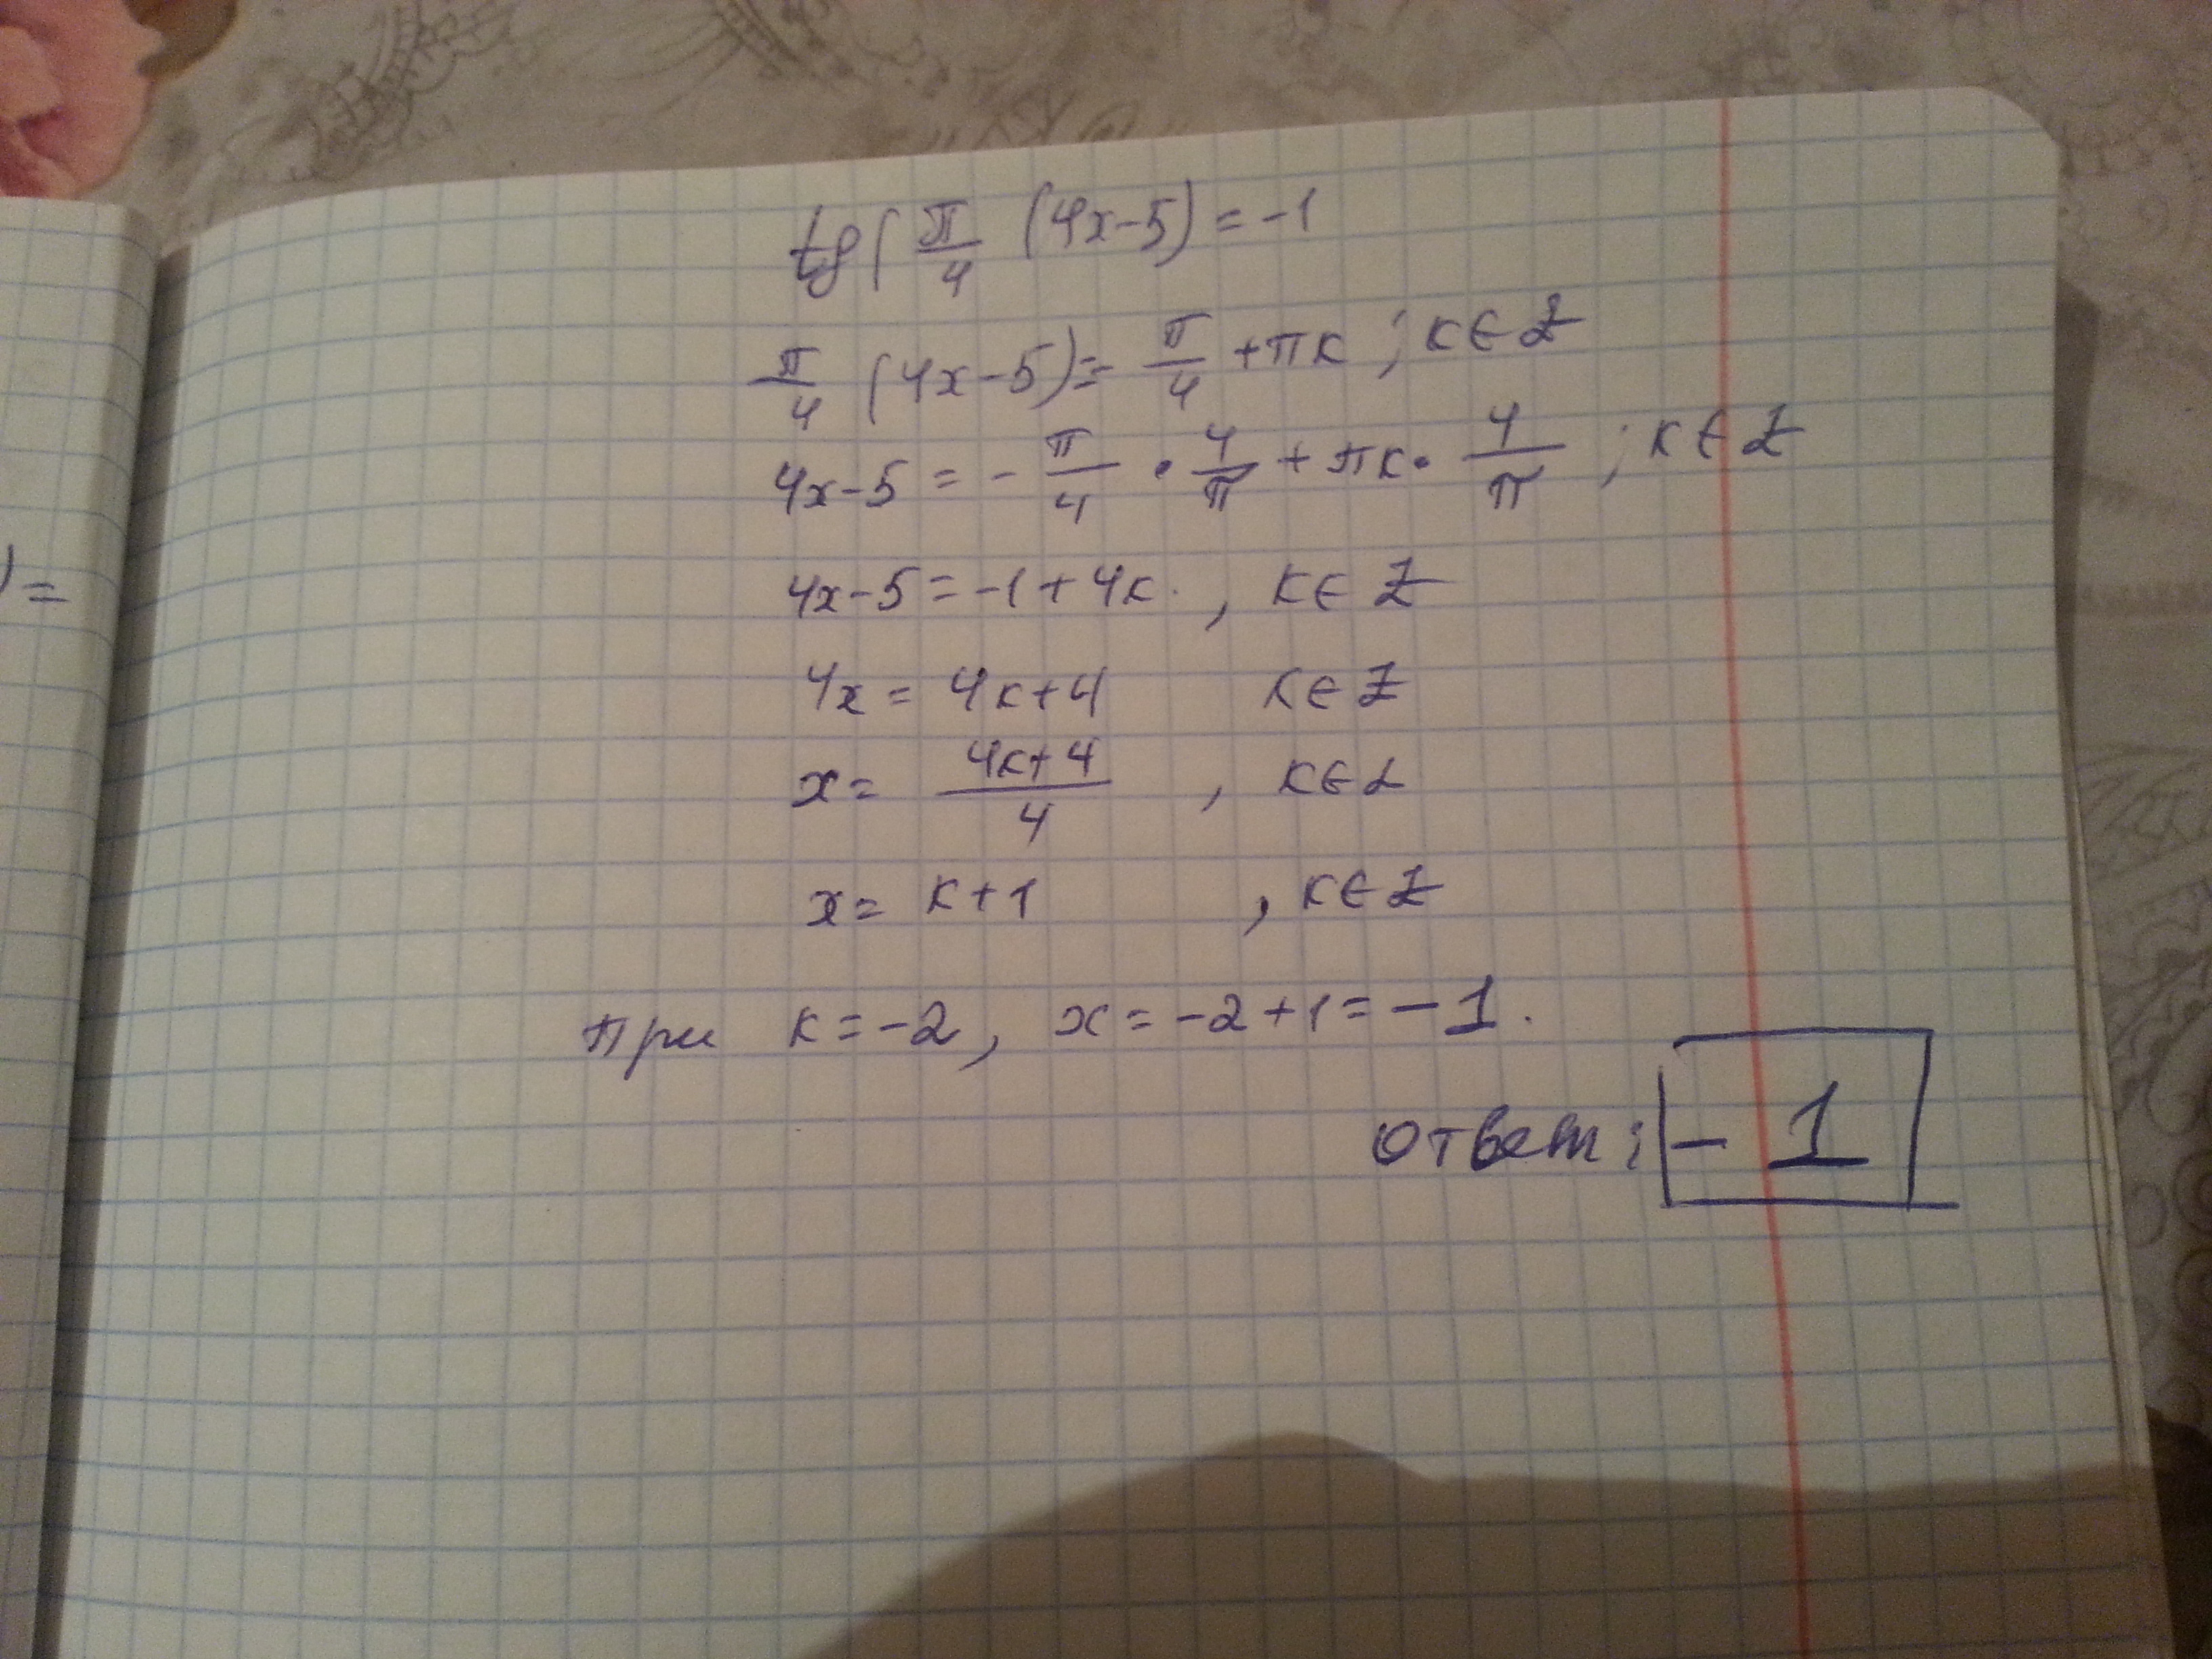 tg(π/4 (4x-5)=-1
π/4 (4x-5)=-π/4+πк; к∈Z
4x-5=-π/4•4/π+πк•4/π; к∈Z
)=
4x-5=-1+4к, к∈Z
4x=4к+4 к∈Z
x=(4к+4)/4, к∈Z
x=к+1, к∈Z
при к=-2, x=-2+1=-1.
ответ: -1